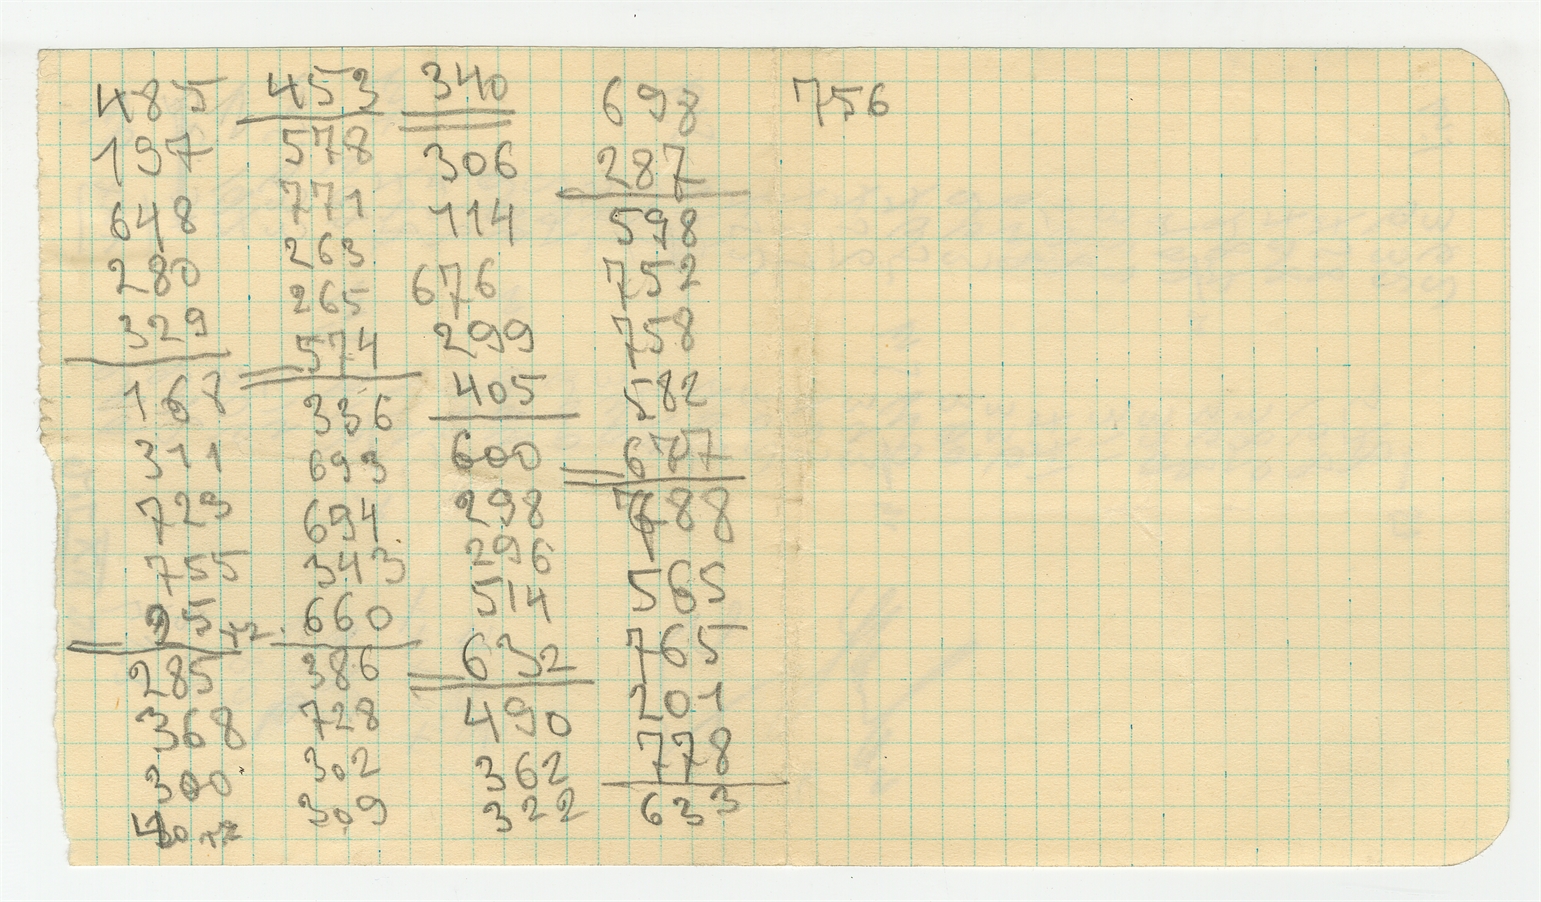 485
197
648
280
329
168
311
729
755
95
285
368
300
453
578
771
263
265
574
336
693
694
343
660
386
728
302
309
340
306
114
676
299
405
600
298
296
514
632
490
362
322
698
287
598
752
758
582
677
688
565
765
201
778
633
756